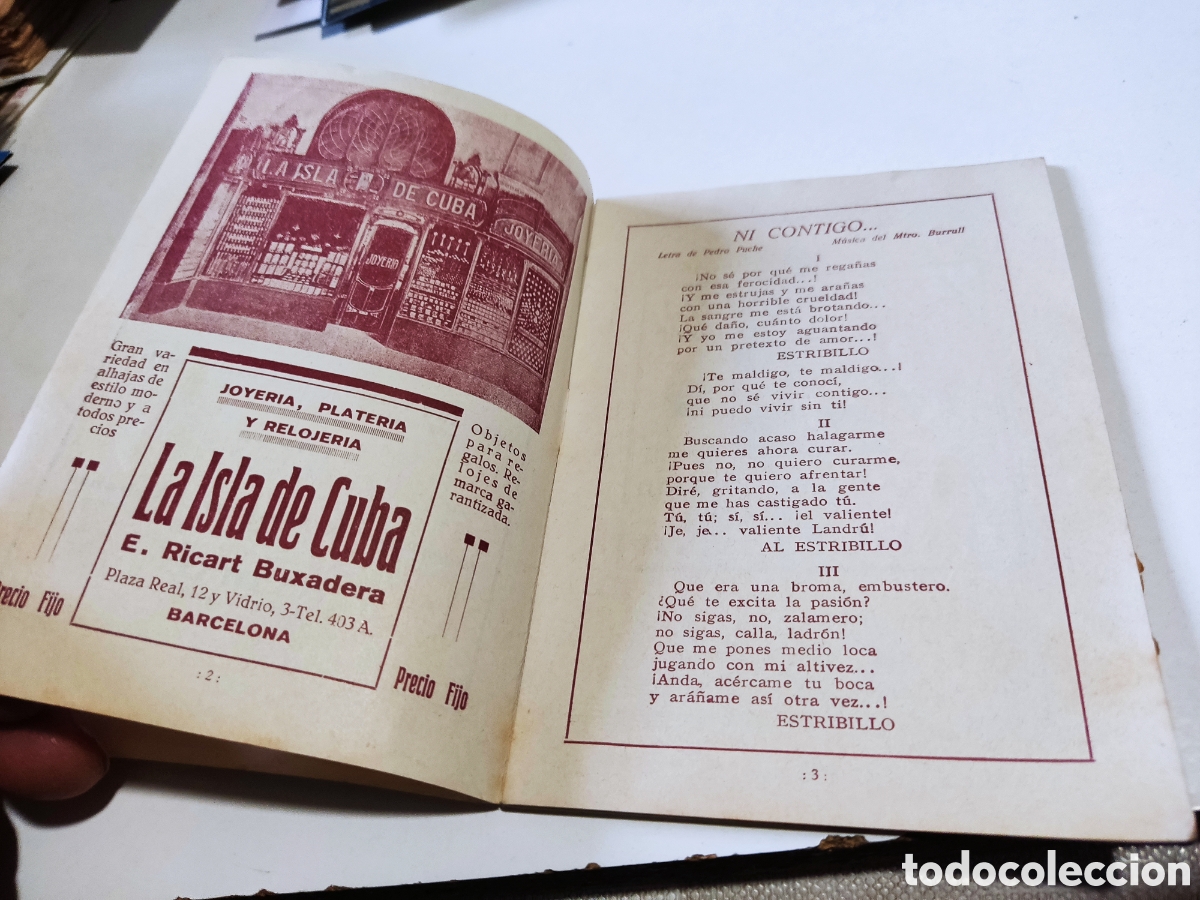 LA ISLA DE CUBA
JOYERIA
JOYERIA
Gran va-
riedad en
alhajas de
estilo mo-
derno y a
todos pre-
cios
JOYERIA, PLATERIA
Y RELOJERIA
La Isla de Cuba
E. Ricart Buxadera
Plaza Real, 12 y Vidrio, 3-Tel. 403 A.
BARCELONA
Objetos
para re-
galos. Re-
lojes de
marca ga-
rantizada.
Precio Fijo
Precio Fijo
: 2 :
NI CONTIGO...
Letra de Pedro Puche Música del Mtro. Burrull
I
¡No sé por qué me regañas
con esa ferocidad...!
¡Y me estrujas y me arañas
con una horrible crueldad!
La sangre me está brotando...
¡Qué daño, cuánto dolor!
¡Y yo me estoy aguantando
por un pretexto de amor...!
ESTRIBILLO
¡Te maldigo, te maldigo...!
Dí, por qué te conocí,
que no sé vivir contigo...
¡ni puedo vivir sin ti!
II
Buscando acaso halagarme
me quieres ahora curar.
¡Pues no, no quiero curarme,
porque te quiero afrentar!
Diré, gritando, a la gente
que me has castigado tú.
Tú, tú; sí, sí... ¡el valiente!
¡Je, je... valiente Landrú!
AL ESTRIBILLO
III
Que era una broma, embustero.
¿Qué te excita la pasión?
¡No sigas, no, zalamero;
no sigas, calla, ladrón!
Que me pones medio loca
jugando con mi altivez...
¡Anda, acércame tu boca
y aráñame así otra vez...!
ESTRIBILLO
: 3 :
todocoleccion